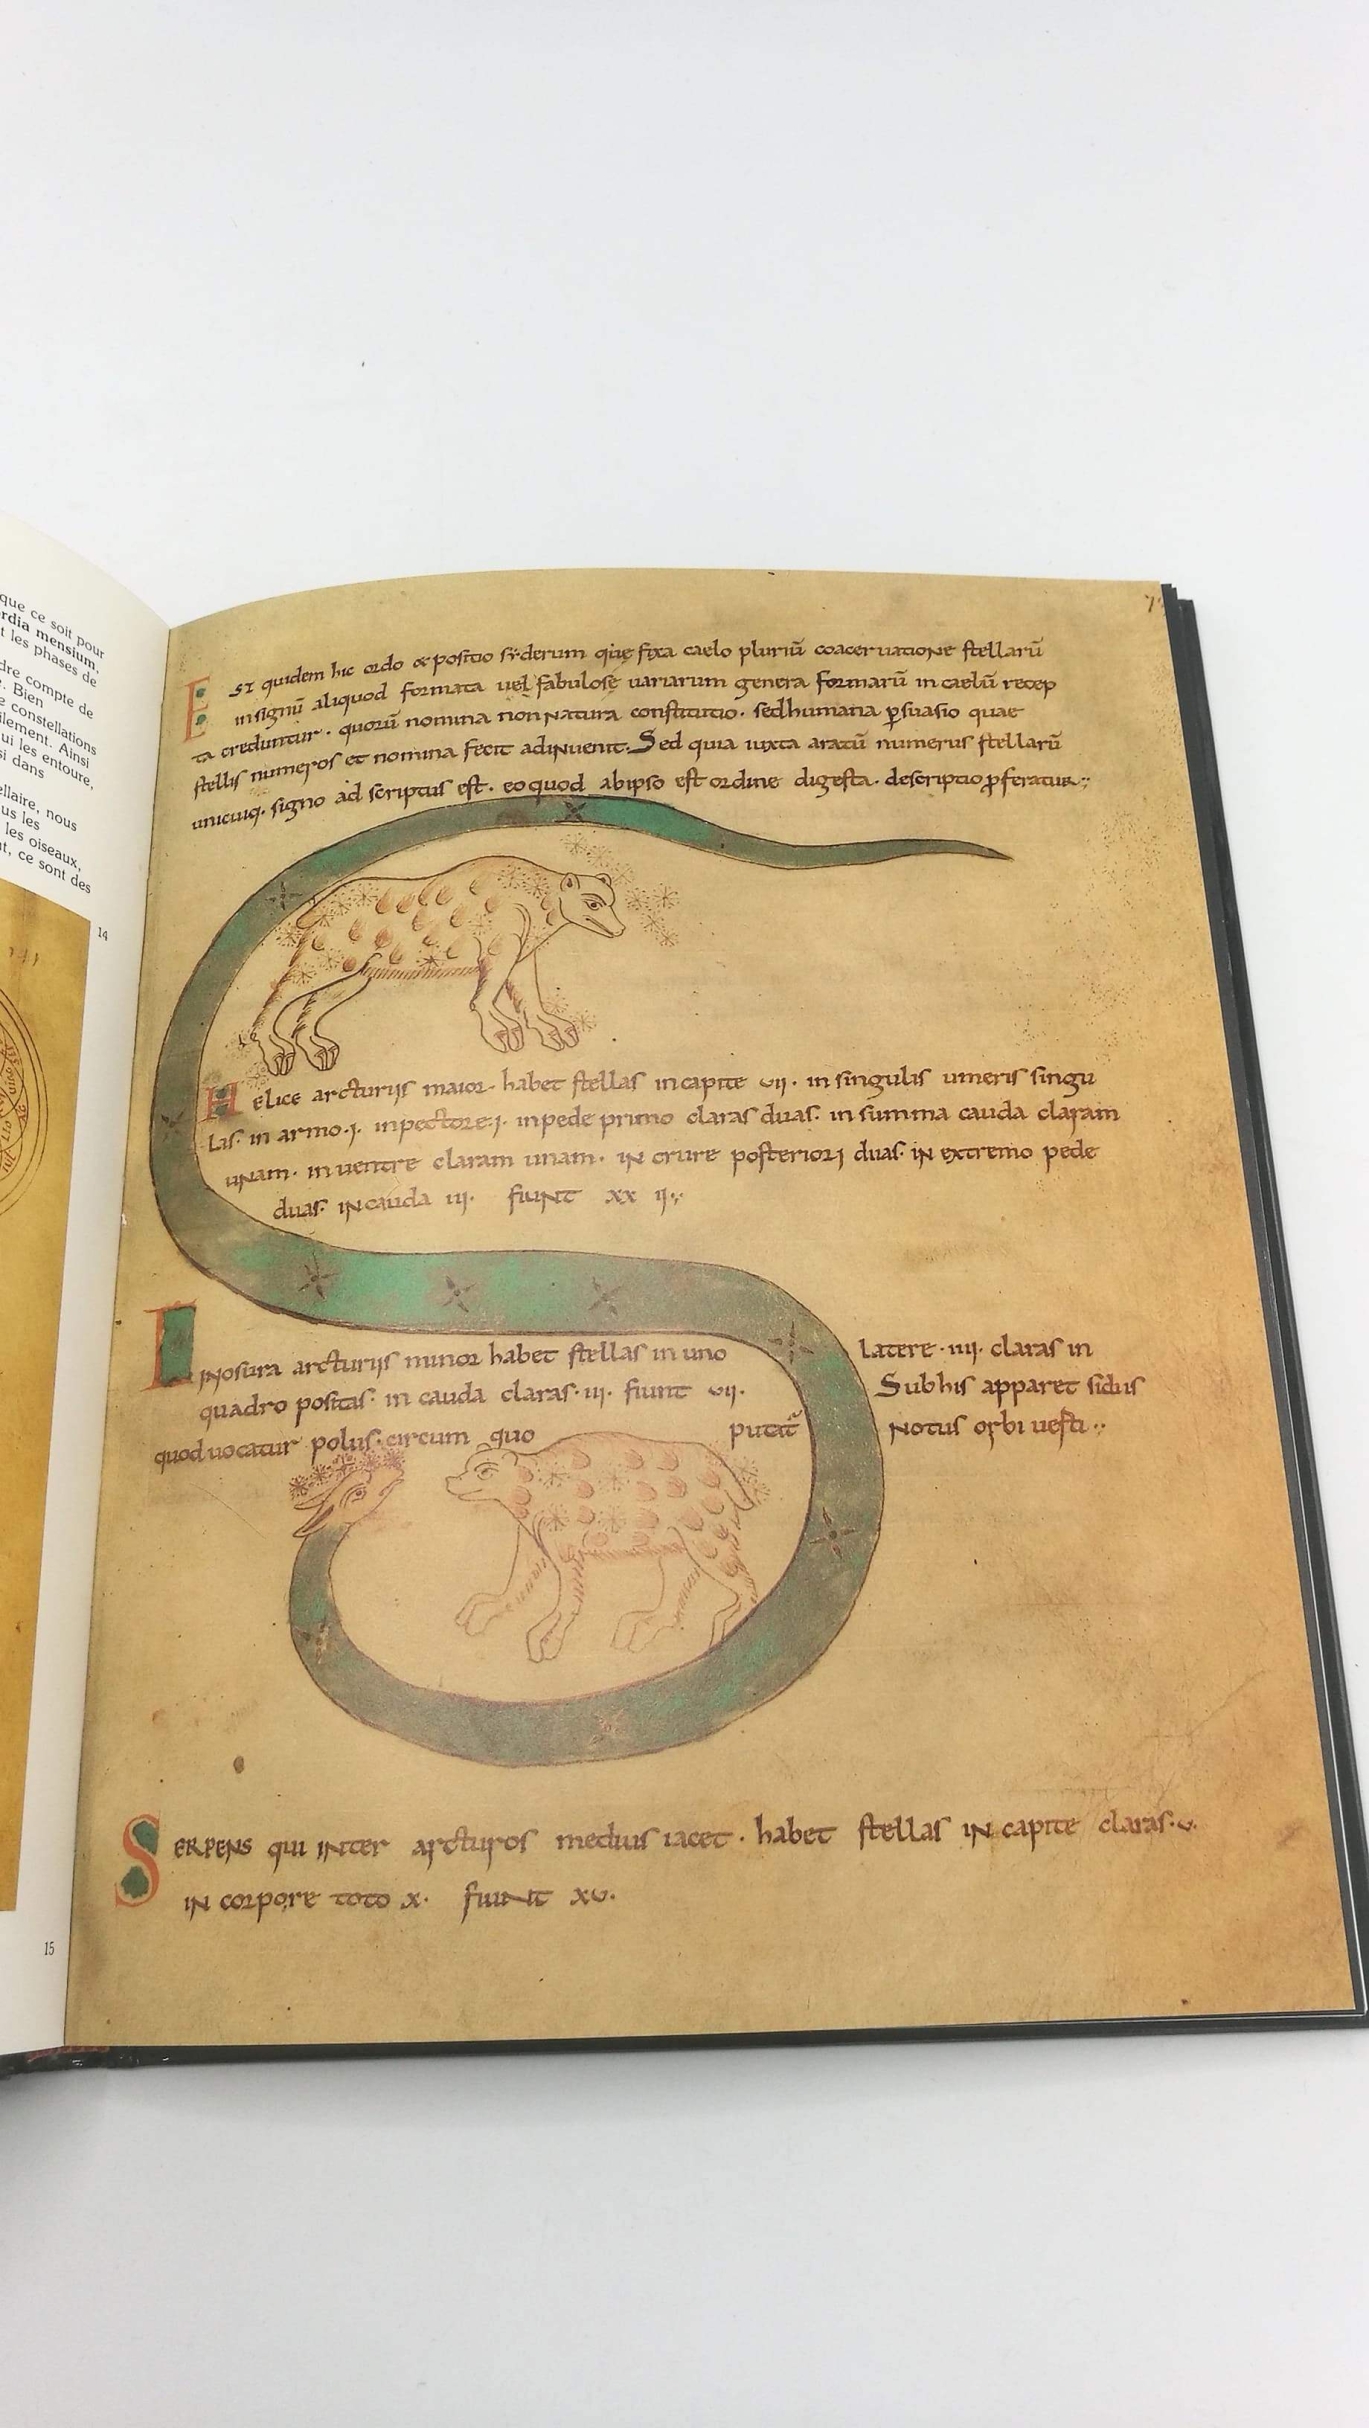 que ce soit pour
rdia mensium,
t les phases de
dre compte de
. Bien
e constellations
ilement. Ainsi
ui les entoure,
si dans
ellaire, nous
us les
les oiseaux,
nt, ce sont des
14
15
Est quidem hic ordo & positio syderum que fixa caelo pluriū coaceruatione stellarū
insignū aliquod formata uel fabulose uariarum genera formarū in caelū recep
ta creduntur · quorū nomina non natura constitutio · sed humana psuasio quae
stellis numeros et nomina fecit adinuenit. Sed quia iuxta aratū numerus stellarū
unicuiq. signo ad scriptus est · eo quod ab ipso est ordine digesta · descriptio pferatur
Helice arcturijs maior · habet stellas in capite uij · in singulis umeris singu
las · in armo · j · in pectore · j · in pede primo claras duas · in summa cauda claram
unam · in uentre claram unam · in crure posteriori duas · in extremo pede
duas · in cauda iij · fiunt xx ij
inosura arcturijs minor habet stellas in uno latere · iiij · claras in
quadro positas · in cauda claras · iij · fiunt uij · Sub his apparet sidus
quod uocatur polus · circum quo putat notus orbi uesti
Serpens qui inter arcturos medius iacet · habet stellas in capite claras · u ·
in corpore toto x · fiunt xu ·